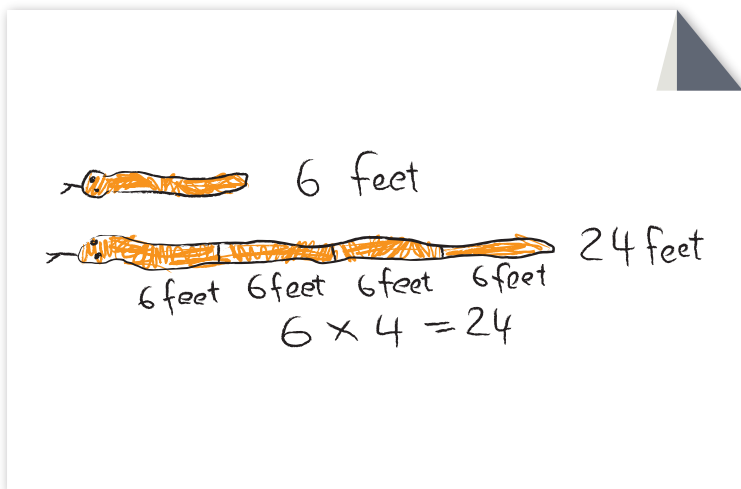 6 feet
24 feet
6 feet 6 feet 6 feet 6 feet
6 × 4 = 24